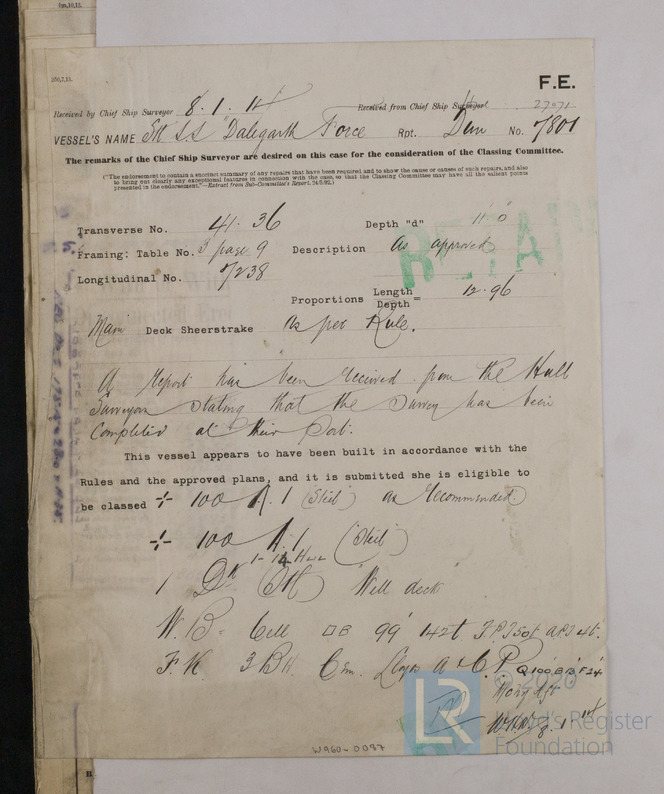 F.E.
Received by Chief Ship Surveyor 8.1.14 Received from Chief Ship Surveyor
VESSEL'S NAME St SS "Dalegarth Force Rpt. No. 7801
The remarks of the Chief Ship Surveyor are desired on this case for the consideration of the Classing Committee.
("The endorsement to contain a succinct summary of any repairs that have been required and to show the cause or causes of such repairs, and also
to bring out clearly any exceptional features in connection with the case, so that the Classing Committee may have all the salient points
presented in the endorsement."—Extract from Sub-Committee's Report, 24/5/92.)
Transverse No. 41.36 Depth "d" 11.0
Framing: Table No. 3 page 9 Description As approved
Longitudinal No. 7238
Proportions Length/Depth = 12.96
Main Deck Sheerstrake As per Rule.
RETAIN
A Report has been received from the Hull
Surveyors stating that the Survey has been
completed at their Port.
This vessel appears to have been built in accordance with the
Rules and the approved plans, and it is submitted she is eligible to
be classed ✠ 100 A.1 (Steel) as Recommended.
✠ 100 A.1 (Steel)
1 Dk (Stl) Well deck
W.B= Cell DB 99' 142t FPT50t APT 4t.
F.K. 3 BH Cem. Lloyds A & C.P.
© 2020
Lloyd's Register
Foundation
LR
W960-0097